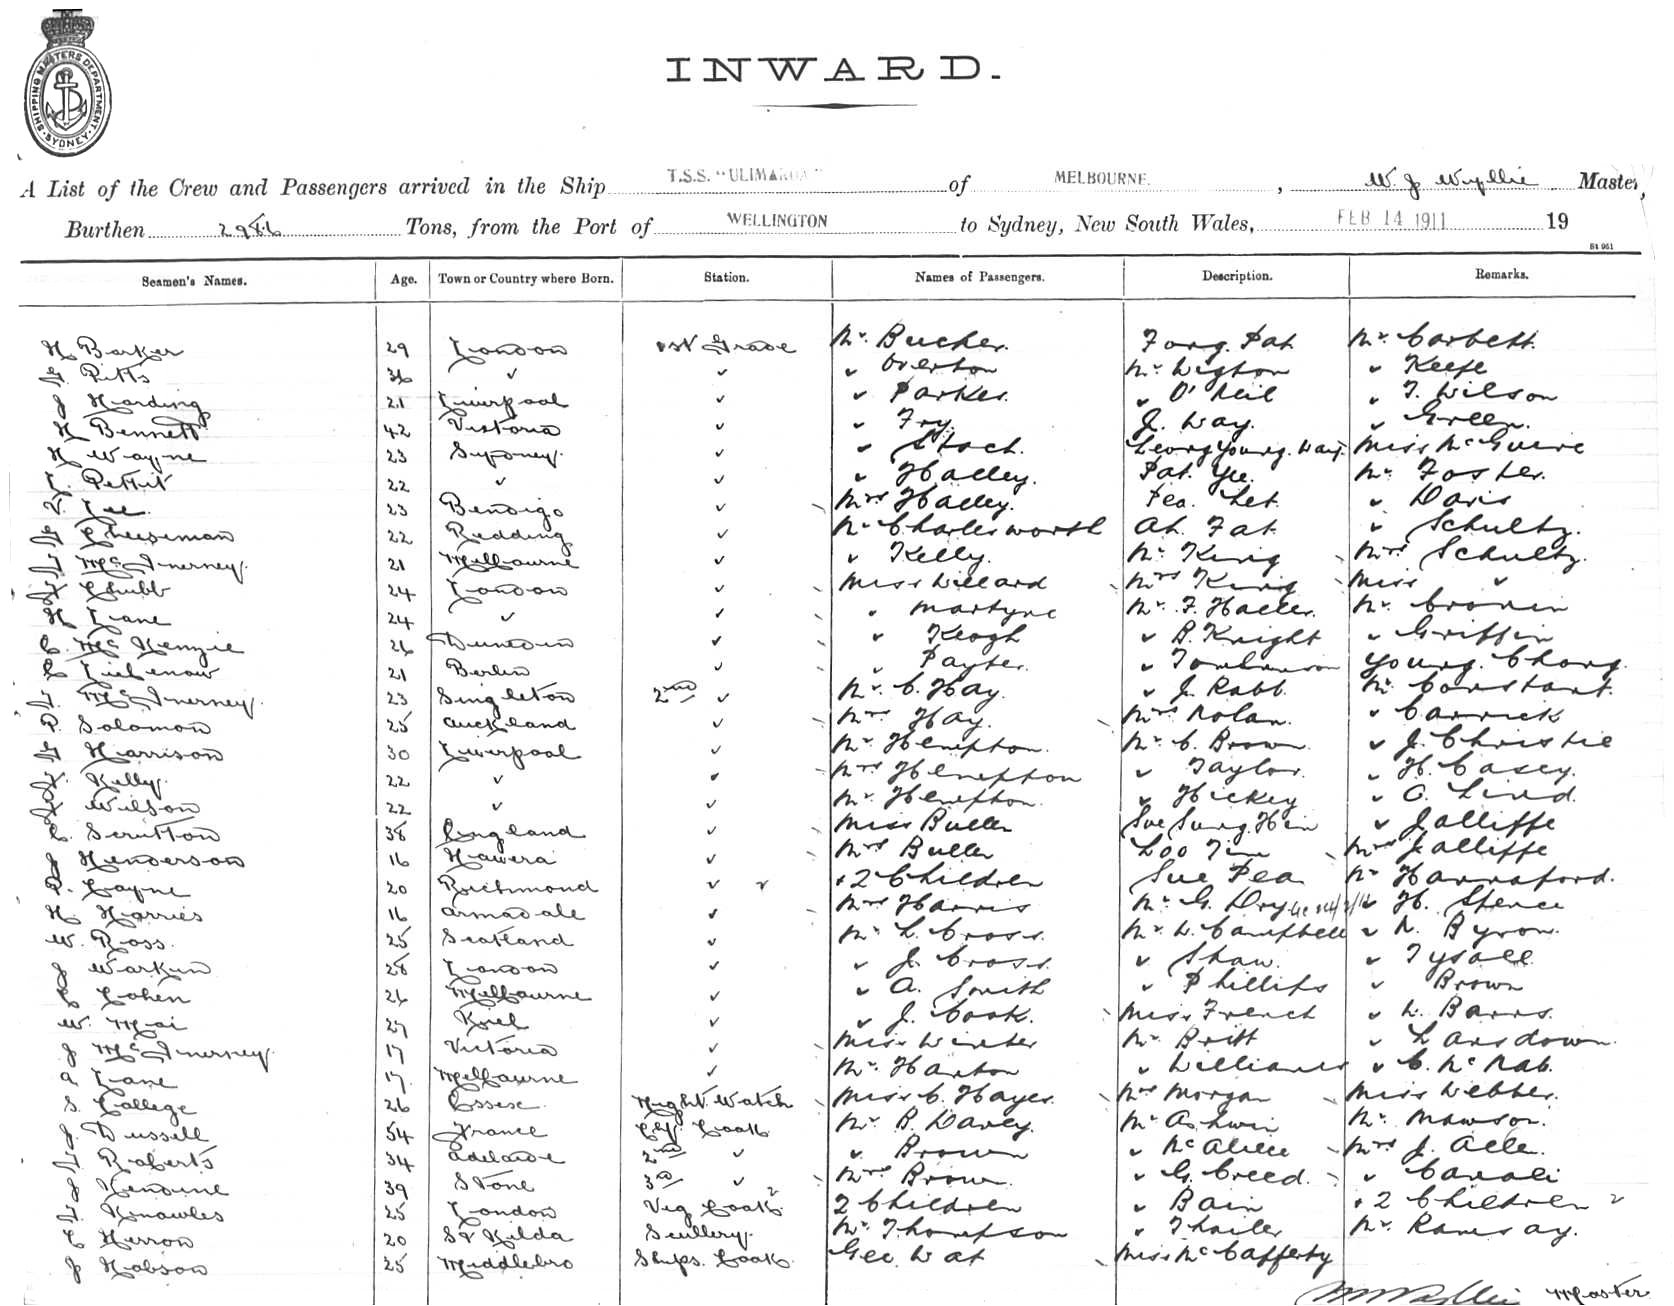 SHIPPING MASTERS DEPARTMENT. SYDNEY
INWARD.
A List of the Crew and Passengers arrived in the Ship T.S.S. "ULIMAROA" of MELBOURNE. , W. J. Wyllie Master,
Burthen Tons, from the Port of WELLINGTON to Sydney, New South Wales, FEB 14 1911 19
St 961
Seamen's Names. Age. Town or Country where Born. Station. Names of Passengers. Description. Remarks.
H Barker 29 London 1st Grade Mr. Bucher. Fong. Pat. Mr. Corbett.
G. Pitts 36 ✓ ✓ ✓ Overton Mr. Wigton ✓ Keefe
J Harding 21 Liverpool ✓ ✓ Parkes. ✓ O'Neil ✓ T. Wilson
H Bennett 42 Victoria ✓ ✓ Fry. J. Way. ✓ Green.
H Wayne 23 Sydney. ✓ ✓ George Young. Miss McGuire
L. Pettit 22 ✓ ✓ ✓ Halley. Pat. Yee. Mr. Foster.
V. Lee. 23 Bendigo ✓ Mrs Halley. Pea. ✓ Davis
G Cheeseman 22 Redding ✓ Mr Charlesworth Ah. Fat. ✓ Schultz.
J McInerney. 21 Melbourne ✓ ✓ Kelly. Mr. King Mrs Schultz.
Chubb 24 London ✓ Miss Willard Mrs King Miss ✓
H Lane 24 ✓ ✓ ✓ Martyne Mr. F. Haller. Mr. Cronin
C. McKenzie 26 Dunedin ✓ ✓ Keogh ✓ B. Knight ✓ Griffin
C Liebenow 21 Berlin ✓ ✓ Payter. ✓ Tomlinson Young. Chong.
J. McInerney. 23 Singleton 2nd ✓ Mr. C. Hay. ✓ J. Robb. Mr. Constant.
P. Solomon 25 Auckland ✓ Mrs Hay. Mrs Nolan. ✓ Carrick
G Harrison 30 Liverpool ✓ Mr. Hempton. Mr. C. Brown. ✓ J. Christie
Kelly. 22 ✓ ✓ Mrs Hempton ✓ Taylor. ✓ H. Casey.
Wilson 22 ✓ ✓ Mr. Hempton. ✓ Hickey ✓ O. Lind.
C. Scrutton 38 England ✓ Miss Buller Sue Sung Hin ✓ Jolliffe
J Henderson 16 Hawera ✓ Mrs Buller Loo Mrs Jolliffe
P. Coyne 20 Richmond ✓ ✓ 2 Children Sue Pea Mr Hannaford.
H Harries 16 Armadale ✓ Mrs Harris Mr. G. Dry ✓ H. Spence
W. Ross. 25 Scotland ✓ Mr. L. Cross. Mr. W. Campbell ✓ N. Byron.
J Warkin 28 London ✓ ✓ J. Cross. ✓ Shaw. ✓ Tysall
C Cohen 26 Melbourne ✓ ✓ A. Smith ✓ Phillips ✓ Brown
W. Moi 27 Kiel ✓ ✓ J. Cook. Miss French ✓ W. Barrs.
J McInerney. 17 Victoria ✓ Miss Winter Mr. Britt ✓ Lansdown.
A Lane 17 Melbourne ✓ Mr. Hanton ✓ Williams ✓ C. McNab.
S. College 26 Essex. Night Watch Miss C. Hayes. Mrs Morgan Miss Webber.
J. Dussell 54 France Chf. Cook Mr. B. Davey. Mr Ashwin Mr. Mawson.
J. Roberts 34 Adelaide 2nd ✓ ✓ Brown ✓ McAlice Mrs J. Alle.
J Kendine 39 Stone 3rd ✓ Mrs Brown. ✓ G. Creed. ✓ Canali
J. Knowles 25 London Veg Cook 2 2 Children ✓ Bain 2 Children ✓
C Herron 20 St Kilda Scullery. Mr. Thompson ✓ Thailer Mr. Ramsay.
J Hobson 25 Middlebro Ships. Cook Gee. Wat Miss McCafferty
Master